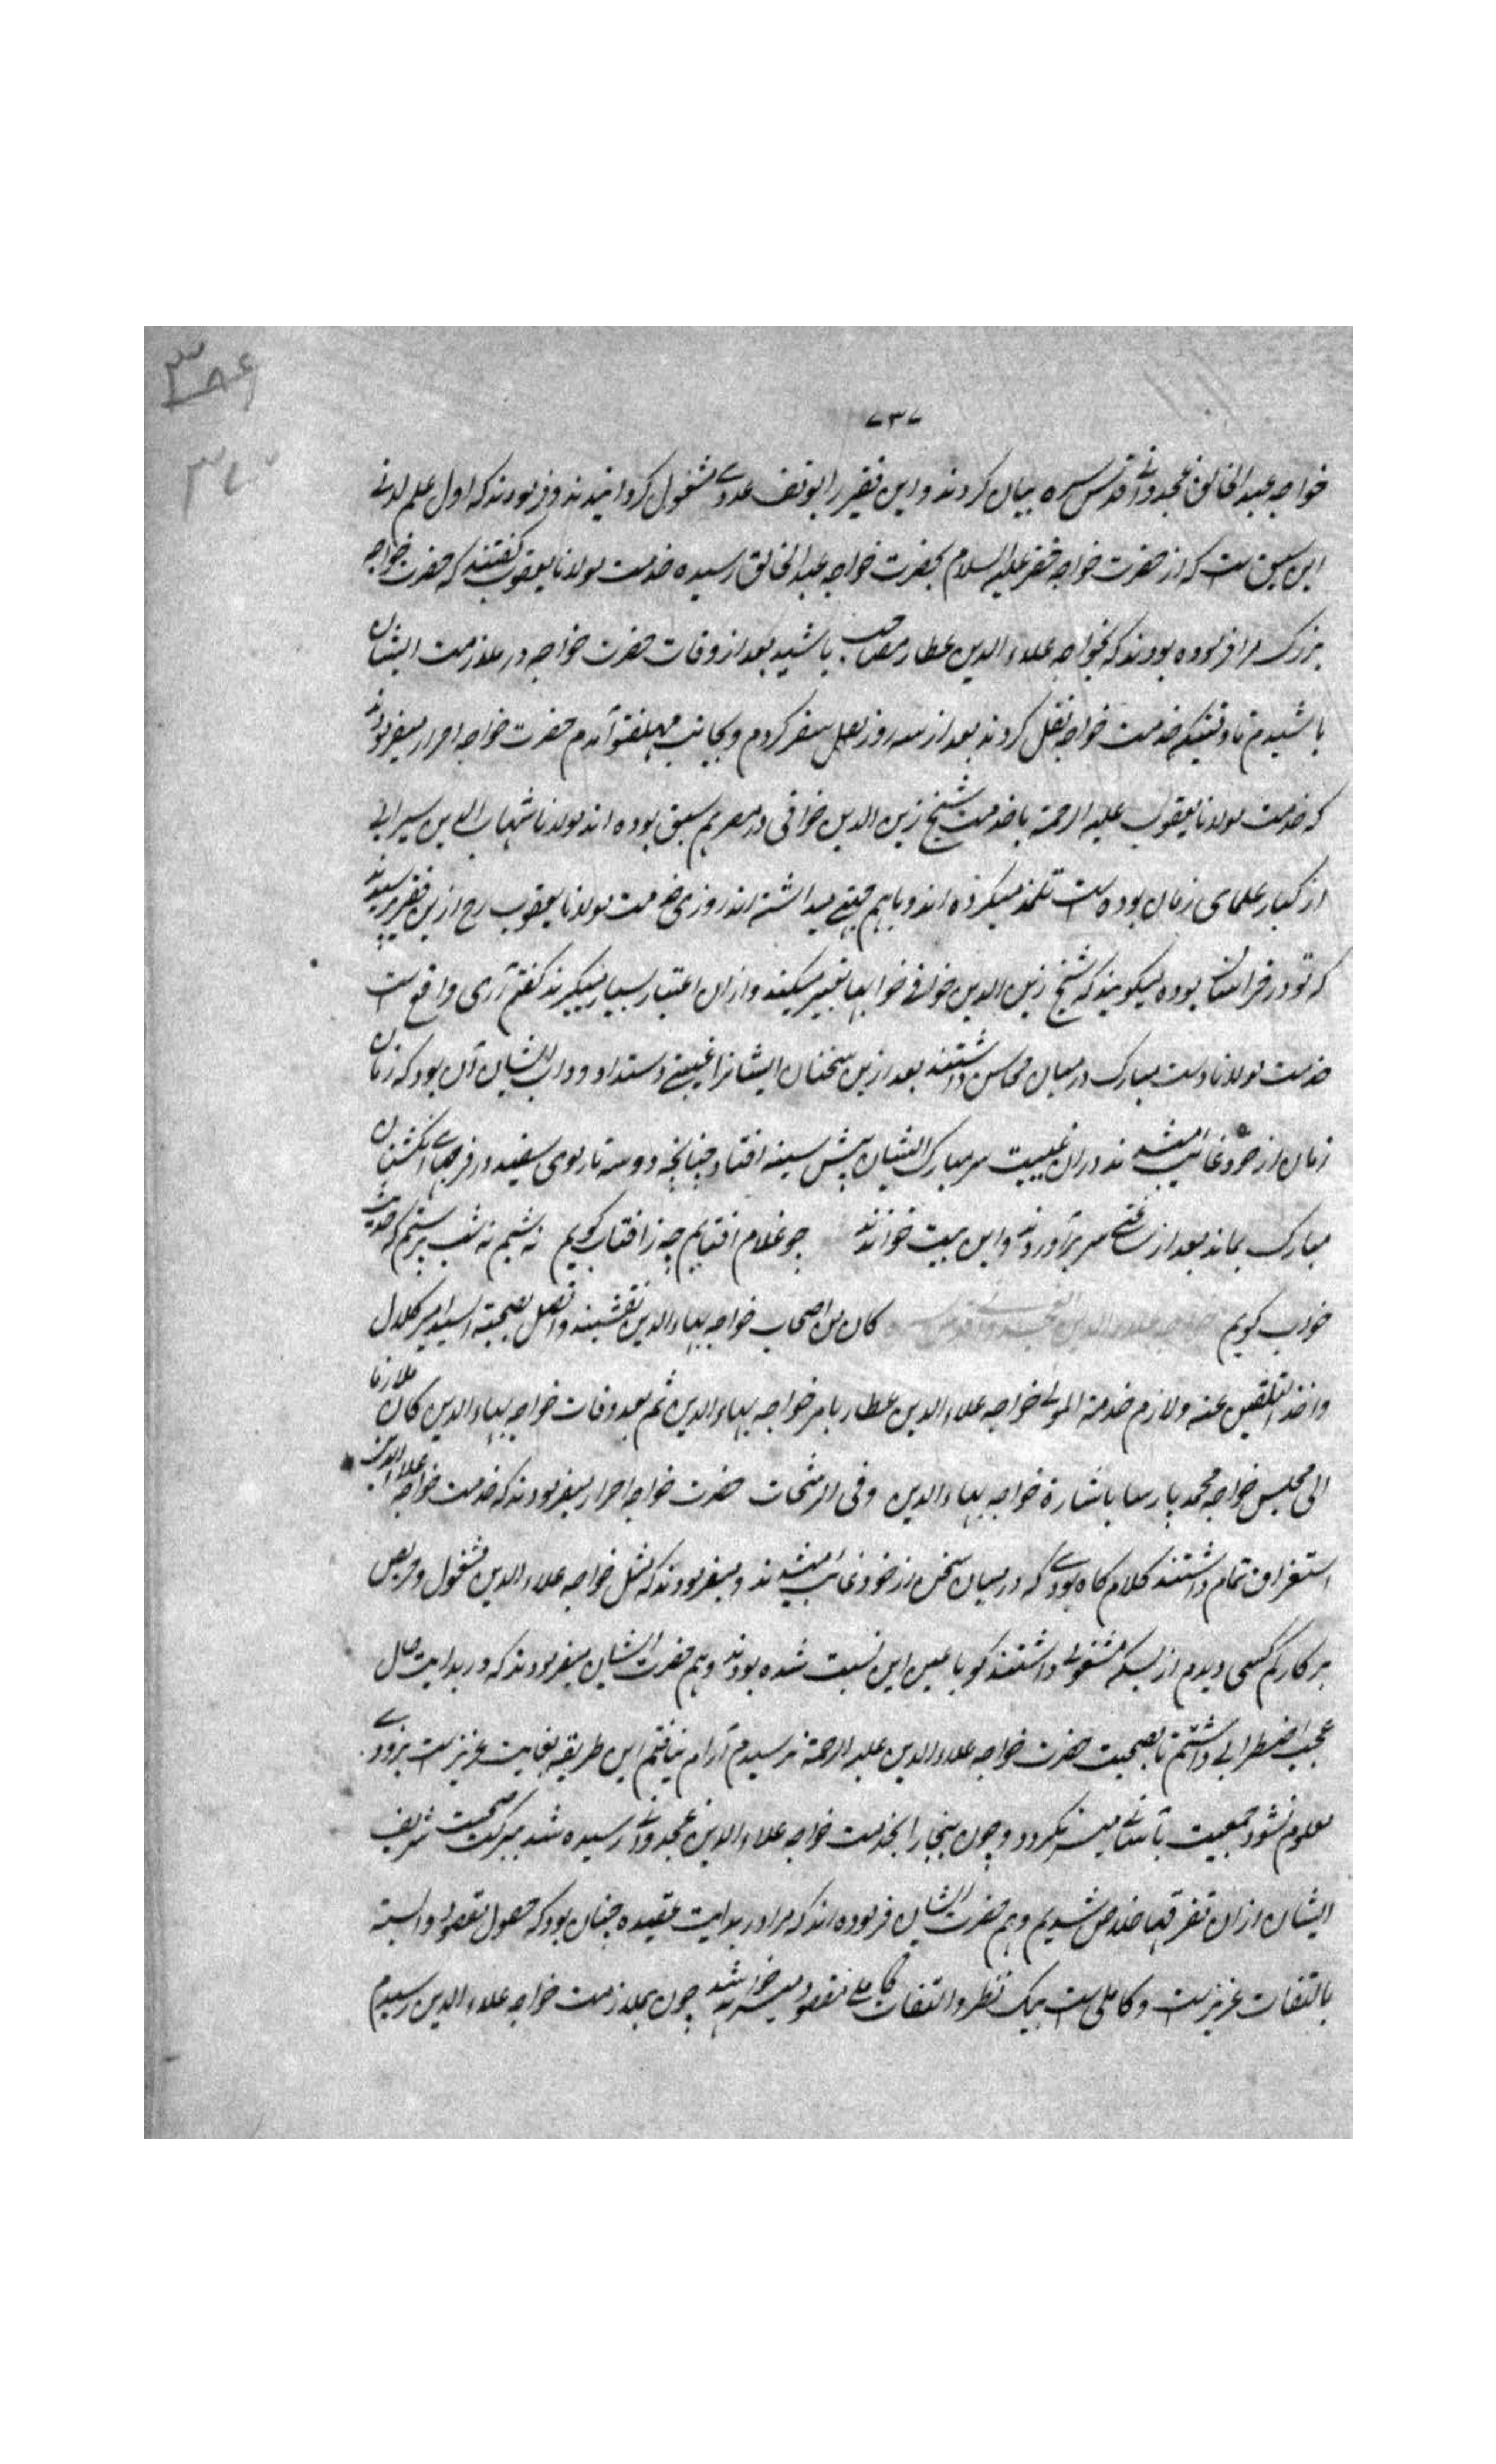 ۷۳۷
خواجه عبد الخالق غجدوانی قدس سره بیان کردند و این فقیر را بوقف عددی مشغول کردانیدند و فرمودند که اول علم لدنی
این سبق است که از حضرت خواجه خضر علیه السلام بحضرت خواجه عبد الخالق رسیده خدمت مولانا یعقوب کفتند که حضرت خواجه
بزرک مرا فرموده بودند که بخواجه علاء الدین عطار مصاحب باشید بعد از وفات حضرت خواجه در ملازمت ایشان
باشیدم تا وقتیکه خدمت خواجه نقل کردند بعد از سه روز نقل سفر کردم و بجانب آمدم حضرت خواجه احرار میفرمودند
که خدمت مولانا یعقوب علیه الرحمة با خدمت شیخ زین الدین خوافی در مصر هم سبق بوده اند مولانا شهاب الدین سیرامی
از کبار علمای زمان بوده است تلمذ میکرده اند و با هم میداشته اند روزی خدمت مولانا یعقوب رح ازین فقیر پرسیدند
که تو در خراسان بوده میکویند که شیخ زین الدین خوافی خوابها تعبیر میکنند و ازان اعتبار بسیار میکیرند کفتم آری واقع است
خدمت مولانا دست مبارک در میان محاسن داشتند بعد ازین سخنان ایشانرا غیبتی دستداد و داب ایشان آن بود که زمان
زمان از خود غائب میشدند دران غیبت سر مبارک ایشان پیش سینه افتاد چنانچه دو سه تار موی سفید در فرجهای انکشتان
مبارک بماند بعد از ساعتی سر برآوردند و این بیت خواندند چو غلام افتابم چه ز افتاب کویم نه شبم نه شب پرستم که حدیث
خواب کویم کان من اصحاب خواجه بهاء الدین نقشبند واتصل بصحبة السید امیر کلال
واخذ التلقین عنه ولازم خدمة المولی خواجه علاء الدین عطار بامر خواجه بهاء الدین ثم بعد وفات خواجه بهاء الدین کان ملازما
الی مجلس خواجه محمد پارسا باشارة خواجه بهاء الدین وفی الرشحات حضرت خواجه احرار میفرمودند که خدمت خواجه علاء الدین
استغراق تمام داشتند کلام کاه بودی که در میان سخن از خود غائب میشدند و میفرمودند که مثل خواجه علاء الدین مشغول و حریص
بر کار کم کسی دیدم از بسکه مشغولی داشتند کویا عین این نسبت شده بودند و هم حضرت ایشان میفرمودند که در بدایت حال
عجب اضطرابی داشتم تا بصحبت حضرت خواجه علاء الدین علیه الرحمة نرسیدم آرام نیافتم این طریقه بغایت عزیز است بزودی
معلوم نشود جمعیت بآسانی میسر نکردد و چون ببخارا بخدمت خواجه علاء الدین غجدوانی رسیده شد ببرکت صحبت شریف
ایشان ازان تفرقها خلاص شدیم و هم حضرت ایشان فرموده اند که مرا در بدایت عقیده چنان بود که حصول مقصود وابسته
بالتفات عزیزیست و کاملی است بیک نظر و التفات کاملی مقصود میسر خواهد شد چون بملازمت خواجه علاء الدین رسیدم